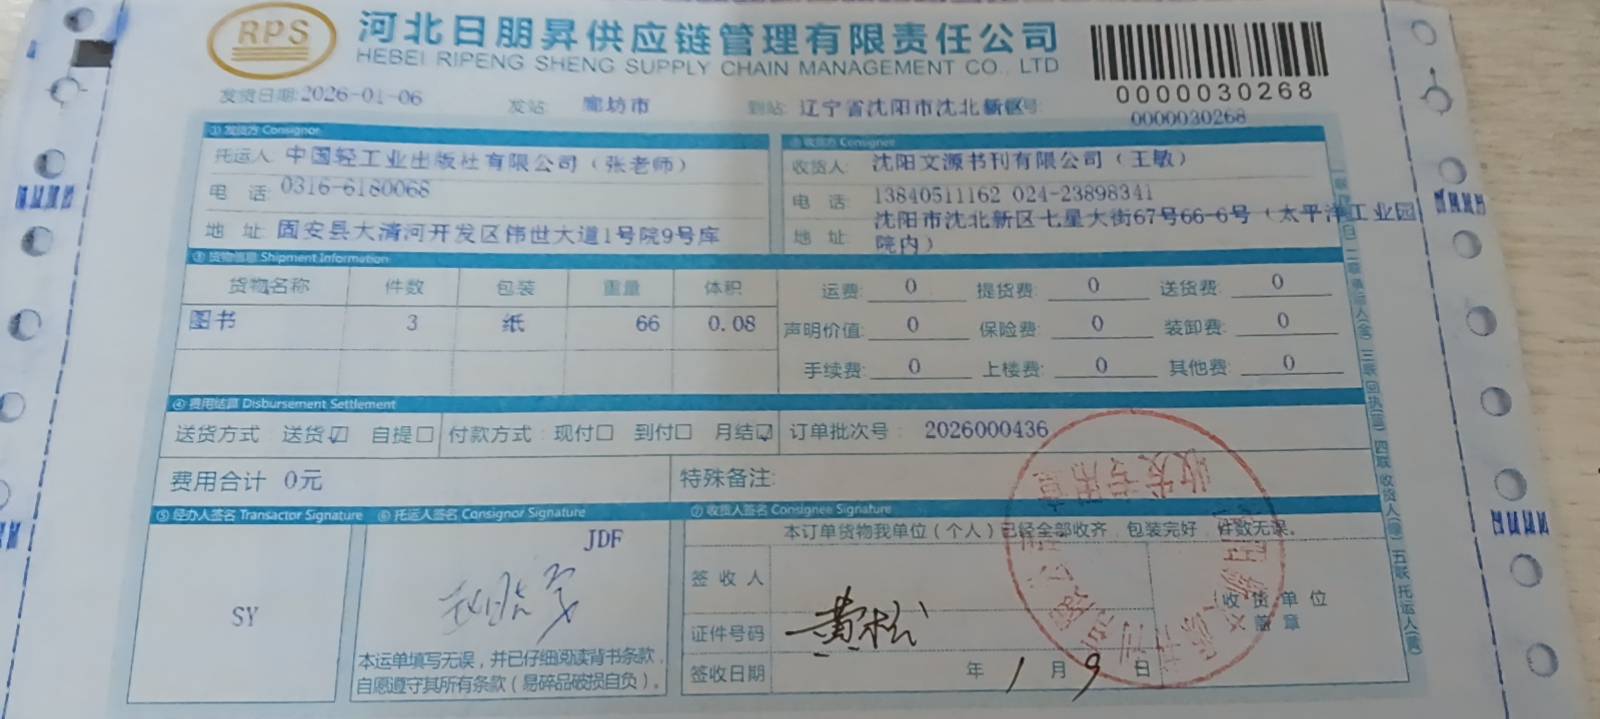 RPS
河北日朋昇供应链管理有限责任公司
HEBEI RIPENG SHENG SUPPLY CHAIN MANAGEMENT CO., LTD
0000030268
发货日期:2026-01-06 发站: 廊坊市 到站: 辽宁省沈阳市沈北新区 0000030268
① 发货方 Consignor
托运人: 中国轻工业出版社有限公司（张老师）
电 话: 0316-6180068
地 址: 固安县大清河开发区伟世大道1号院9号库
② 收货方 Consignee
收货人: 沈阳文源书刊有限公司（王敏）
电 话: 13840511162 024-23898341
地 址: 沈阳市沈北新区七星大街67号66-6号（太平洋工业园
院内）
③ 货物信息 Shipment Information
货物名称 件数 包装 重量 体积
图书 3 纸 66 0.08
运费: 0 提货费: 0 送货费: 0
声明价值: 0 保险费: 0 装卸费: 0
手续费: 0 上楼费: 0 其他费: 0
④ 费用结算 Disbursement Settlement
送货方式: 送货☑ 自提☐ 付款方式: 现付☐ 到付☐ 月结☑ 订单批次号: 2026000436
费用合计 0元 特殊备注:
⑤ 经办人签名 Transactor Signature
SY
⑥ 托运人签名 Consignor Signature
JDF
本运单填写无误，并已仔细阅读背书条款，
自愿遵守其所有条款（易碎品破损自负）。
⑦ 收货人签名 Consignee Signature
本订单货物我单位（个人）已经全部收齐，包装完好，件数无误。
签 收 人
黄松
证件号码
签收日期 年 1 月 9 日
收 货 单 位
盖 章
收发专用章